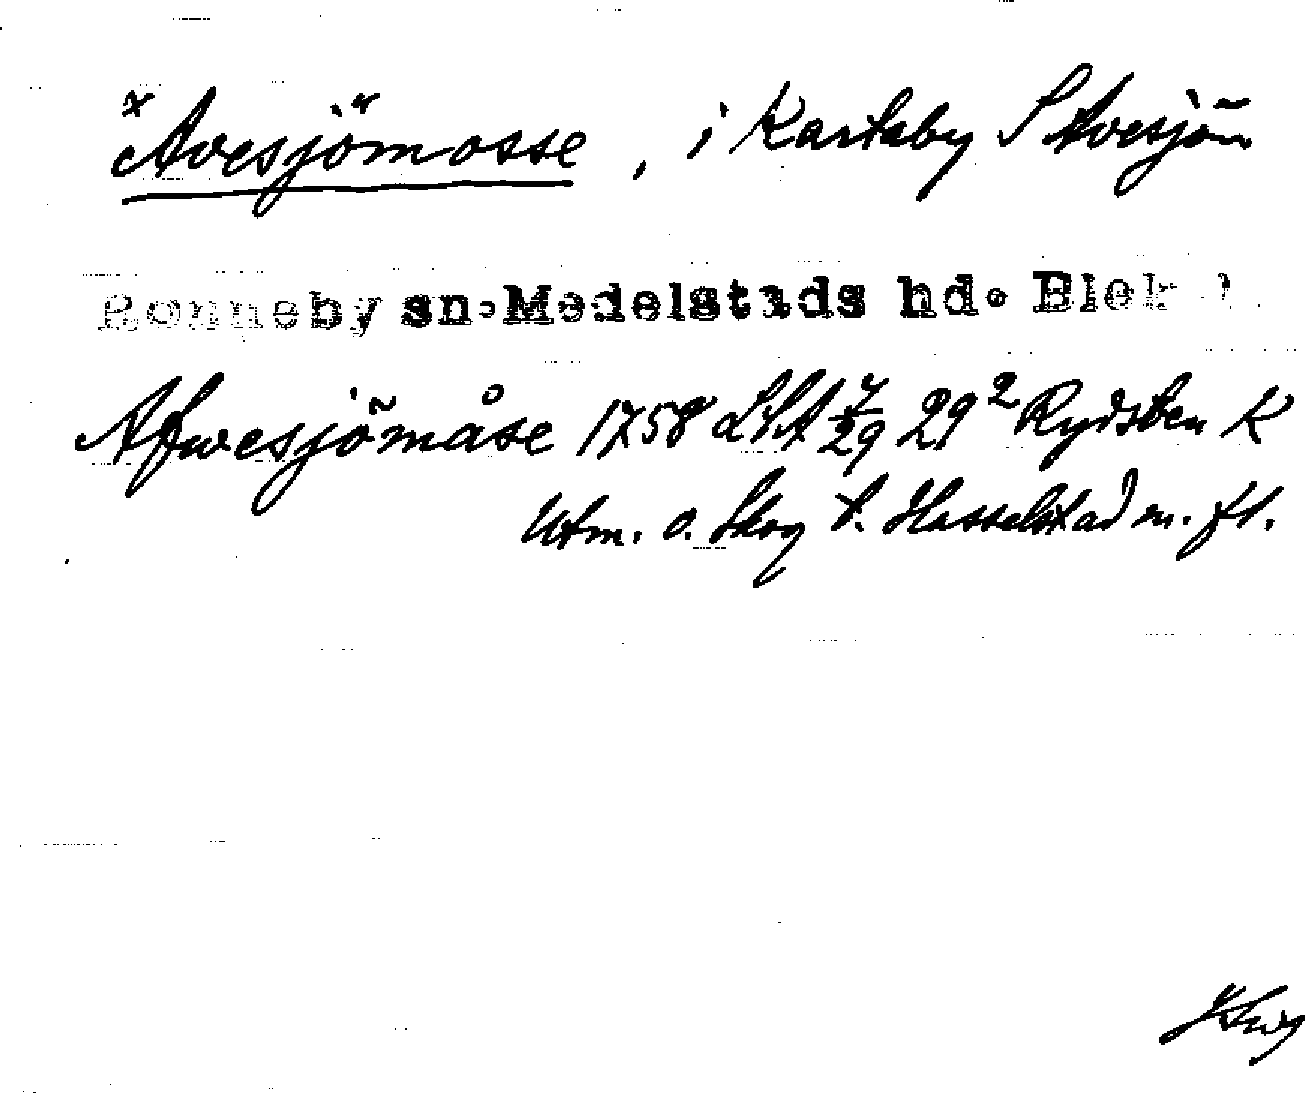 *Avesjömosse, i Karlsby S Avesjön
Ronneby sn. Medelstads hd. Blek
Afwesjömåse 1758 LSA 29² Rydsten K
Utm. o. Skog t. Hasselstad m. fl.